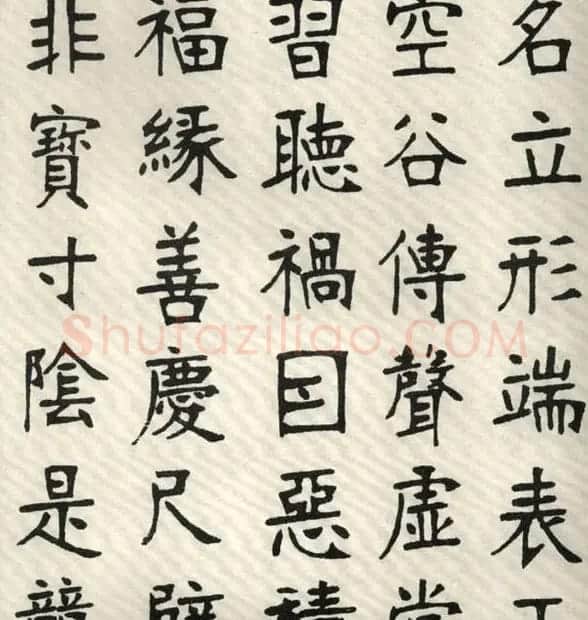 名立形端表
空谷傳聲虚
習聽禍囙惡
福緣善慶尺
非寶寸陰是
Shufaziliao.COM